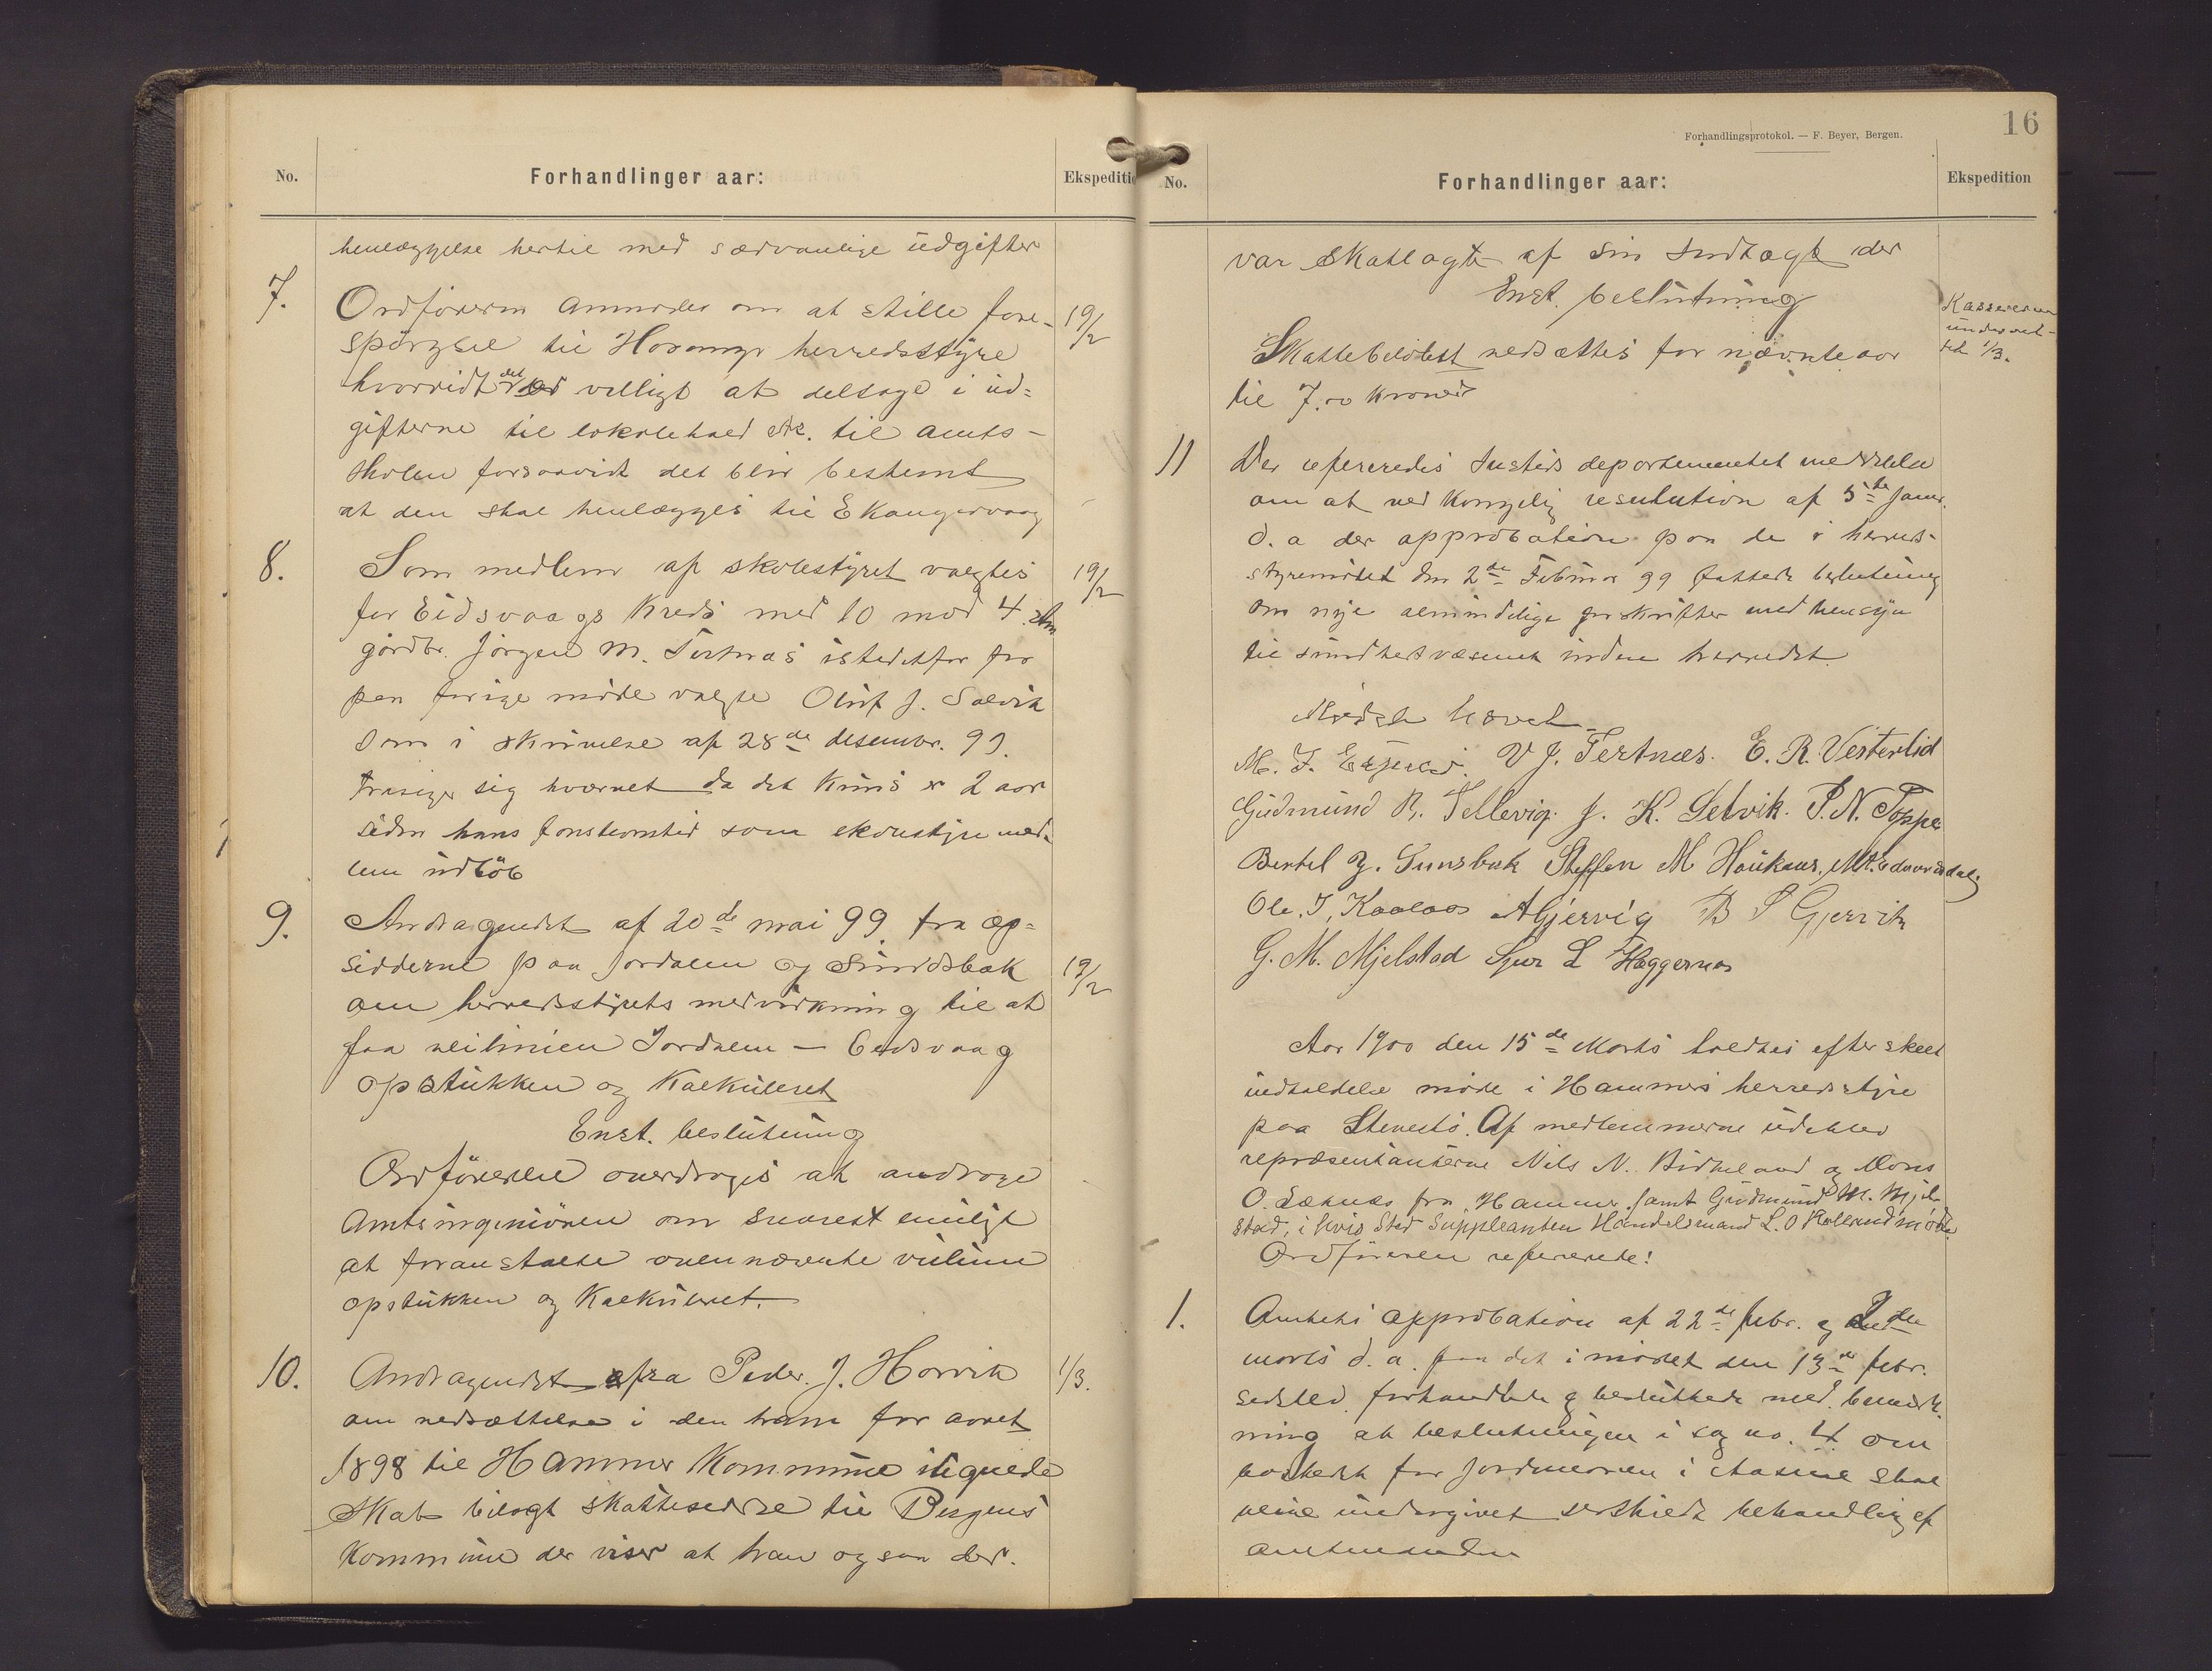 No.
Forhandlinger aar:
Ekspeditio
henlæggelse hertil med sædvanlige üdgifter
7.
Ordföreren anmodes om at stille fore-
19/2
spörgsel til Hosanger herredsstÿre
hvorvidt det er villigt at deltage i üd=
gifterne til lokalehold etc. til amts-
skolen forsaavidt det blir bestemt
at den skal henlægges til Ekangervaag
8.
Som medlem af skolestÿret valgtes
19/2
for Eidsvaags kreds med 10 mod 4 stm
gårdbr. Jörgen M. Tertnæs istedetfor
paa forige möde valgte Oluf J. Salvik
som i skrivelse af 28de desembr. 99.
frasiger sig hvervet da det küns er 2 aar
siden hans fonktionstid som skolestÿremed-
lem üdlöb
9.
Andragendet af 20de mai 99 fra op=
sidderne paa Jordalen og Sündsbak
19/2
om herredsstÿrets medvirkning til at
faa veilinien Jordalen - Eidsvaag
opstükken og kalküleret
Enst. beslütning
Ordföreren overdrages at andrage
Amtsingeniören om snarest müligt
at foranstalte ovennævnte veilinie
opstükken og kalküleret.
10.
Andragendet fra Peder J. Horvik
1/3.
om nedsættelse i den ham for aaret
1898 til Hammer kommüne ilignede
skat bilagt skatteseddel til Bergens
kommüne der viser at han ogsaa der.
16
Forhandlingsprotokol. — F. Beyer, Bergen.
No.
Forhandlinger aar:
Ekspedition
var skatlagt af sin indtægt der
Enst. beslütning
Kassereren
ünderret-
tet 1/3.
Skattebelöbet nedsættes for nævnte aar
til 7.00 kroner
11
Der refereredes Justisdepartementet meddelelse
om at ved kongelig resolution af 5te Janr.
d. a der approbation paa de i herreds-
styremödet den 2de Februar 99 fattede beslutning
om nÿe almindelige forskrifter med hensÿn
til sundhedsvæsenet inden herredet.
Mödet hævet
V J. Tertnæs. E. R. Vesterlid
Güdmünd R. Tellevig. J. K. Selvik. P. N. Toppe
Bertel J. Steffen M Haukaas,
Ole. J, Kaalaas A Gjervig B P Gjervik
G. M. Mjelstad Sjur L Hæggernæs
Aar 1900 den 15de Marts holdtes efter skeet
indkaldelse möde i Hammers herredsstÿre
paa Steinestö. Af medlemmerne üdeblev
repræsentanterne Nils N. Birkeland og Mons
O. fra Hammer. samt Güdmünd M. Mjel-
stad, i hvis Sted Suppleanten Handelsmand L. O mödte
Ordföreren refererede:
1.
Amtets approbation af 22de febr. og 2den
marts d. a. paa det i mödet den 13de febr.
sidstl. forhandlede og besluttede med bemærk-
ning at beslutningen i sag no. 4 om
bosted for jordmoren i Aasene skal
bline undergivet serskilt behandling af
amtmanden